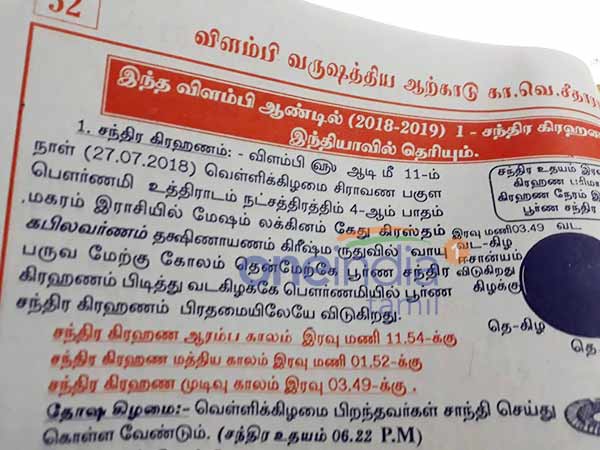 32
விளம்பி வருஷத்திய ஆற்காடு கா.வெ.சீதாரா
இந்த விளம்பி ஆண்டில் (2018-2019) 1 - சந்திர கிரஹண
இந்தியாவில் தெரியும்.
1. சந்திர கிரஹணம்: - விளம்பி ஆடி மீ 11-ம்
நாள் (27.07.2018) வெள்ளிக்கிழமை சிராவண பகுள
பௌர்ணமி உத்திராடம் நட்சத்திரத்திம் 4-ஆம் பாதம்
மகரம் இராசியில் மேஷம் லக்கினம் கேது கிரஸ்தம்
கபிலவர்ணம் தக்ஷிணாயணம் கிரீஷ்ம ருதுவில் "வாயு
பருவ மேற்கு கோலம் தென்மேற்கே பூர்ண சந்திர
கிரஹணம் பிடித்து வடகிழக்கே பௌர்ணமியில் பூர்ண
சந்திர கிரஹணம் பிரதமையிலேயே விடுகிறது.
சந்திர கிரஹண ஆரம்ப காலம் இரவு மணி 11.54-க்கு
சந்திர கிரஹண மத்திய காலம் இரவு மணி 01.52-க்கு
சந்திர கிரஹண முடிவு காலம் இரவு 03.49-க்கு.
தோஷ கிழமை:- வெள்ளிக்கிழமை பிறந்தவர்கள் சாந்தி செய்து
கொள்ள வேண்டும். (சந்திர உதயம் 06.22 P.M)
சந்திர உதயம் இர
கிரஹண பரிம
கிரஹண நேரம் இ
பூர்ண சந்திர
இரவு மணி 03.49
வட-கிழ
ஈசான்யம்
விடுகிறது
வட
கிழக்கு
தெ-கிழ
தெ
oneindia
tamil